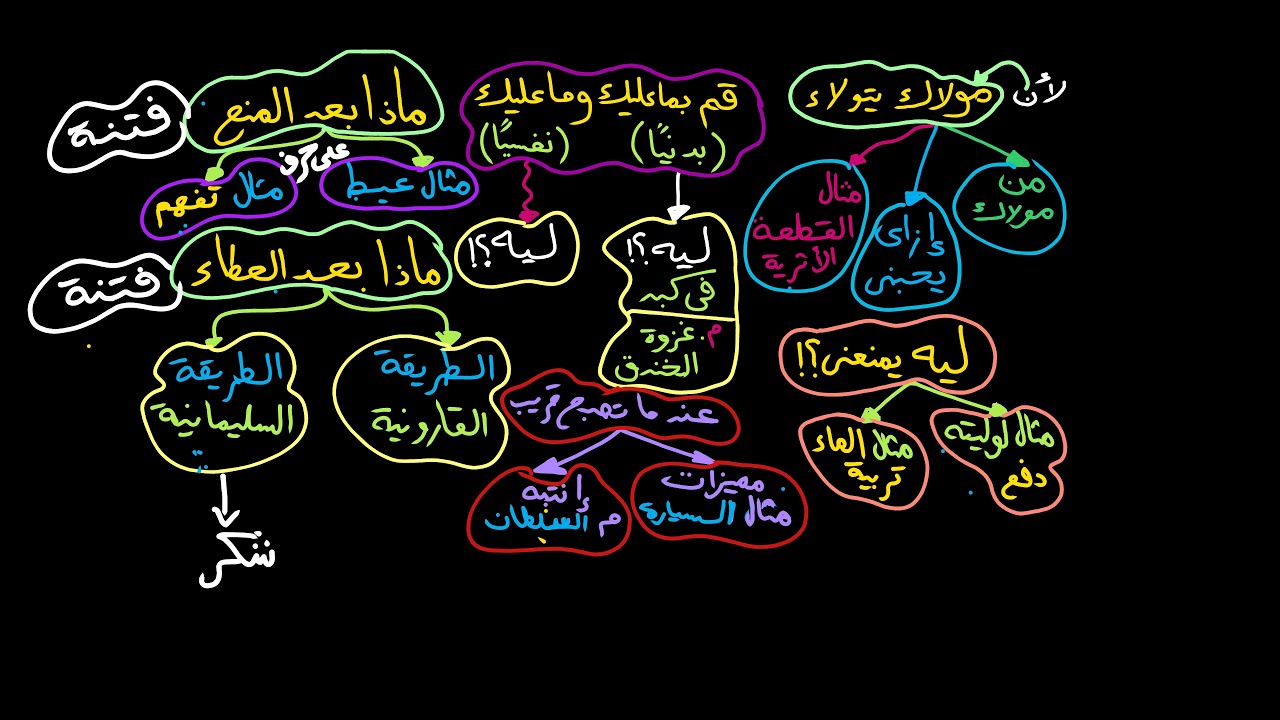 لأن
مولاك يتولاك
من
مولاك
إزاى
يحبنى
مثال
القطعة
الأثرية
ليه يمنعنى؟!
مثال لوليتة
دفع
مثال الماء
تربية
قم بما عليك وما عليك
(بدنيًا)
(نفسيًا)
ليه؟!
فى كبد
م. غزوة
الخندق
ليه؟!
عند ما تصبح قريب
مميزات
مثال السيارة
إنتبه
م السلطان
ماذا بعد المنع
فتنة
على حرف
مثال عيط
مثال تفهم
ماذا بعد العطاء
فتنة
الطريقة
القارونية
الطريقة
السليمانية
شكر